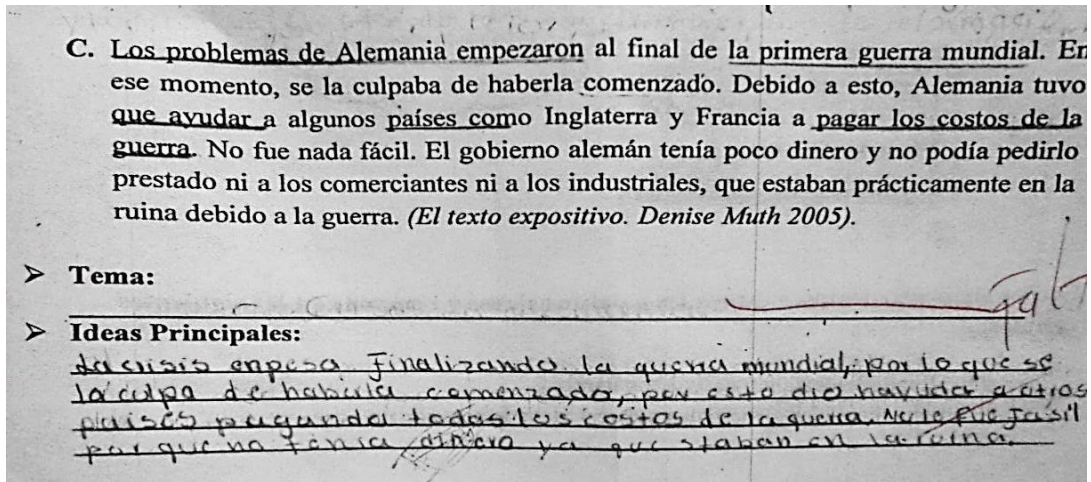 C. Los problemas de Alemania empezaron al final de la primera guerra mundial. En
ese momento, se la culpaba de haberla comenzado. Debido a esto, Alemania tuvo
que ayudar a algunos países como Inglaterra y Francia a pagar los costos de la
guerra. No fue nada fácil. El gobierno alemán tenía poco dinero y no podía pedirlo
prestado ni a los comerciantes ni a los industriales, que estaban prácticamente en la
ruina debido a la guerra. (El texto expositivo. Denise Muth 2005).
➤ Tema:
➤ Ideas Principales:
La crisis enpesa finalizando la guerra mundial, por lo que se
la culpa de haberla comenzado, por esto dio hayudar a otros
plaises pagando todos los costos de la guerra. No le fue fasil
por que no tenia dinero ya que staban en la ruina.